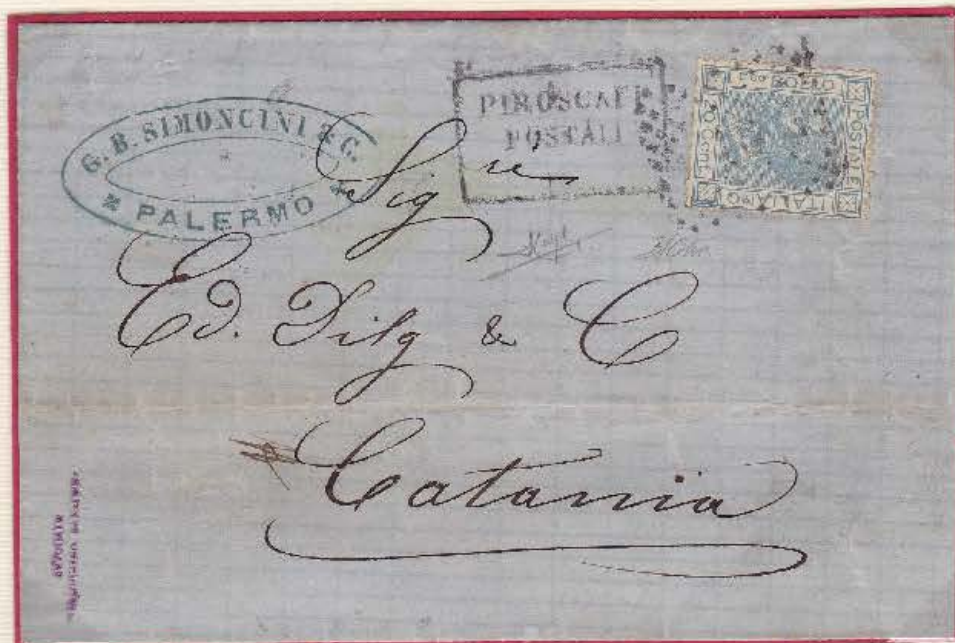 G. B. SIMONCINI & C.
PALERMO
PIROSCAFI
POSTALI
FRANCO
BOLLO
POSTALE
ITALIANO
20 CENT
Sig.re
Ed. Dilg & C
Catania